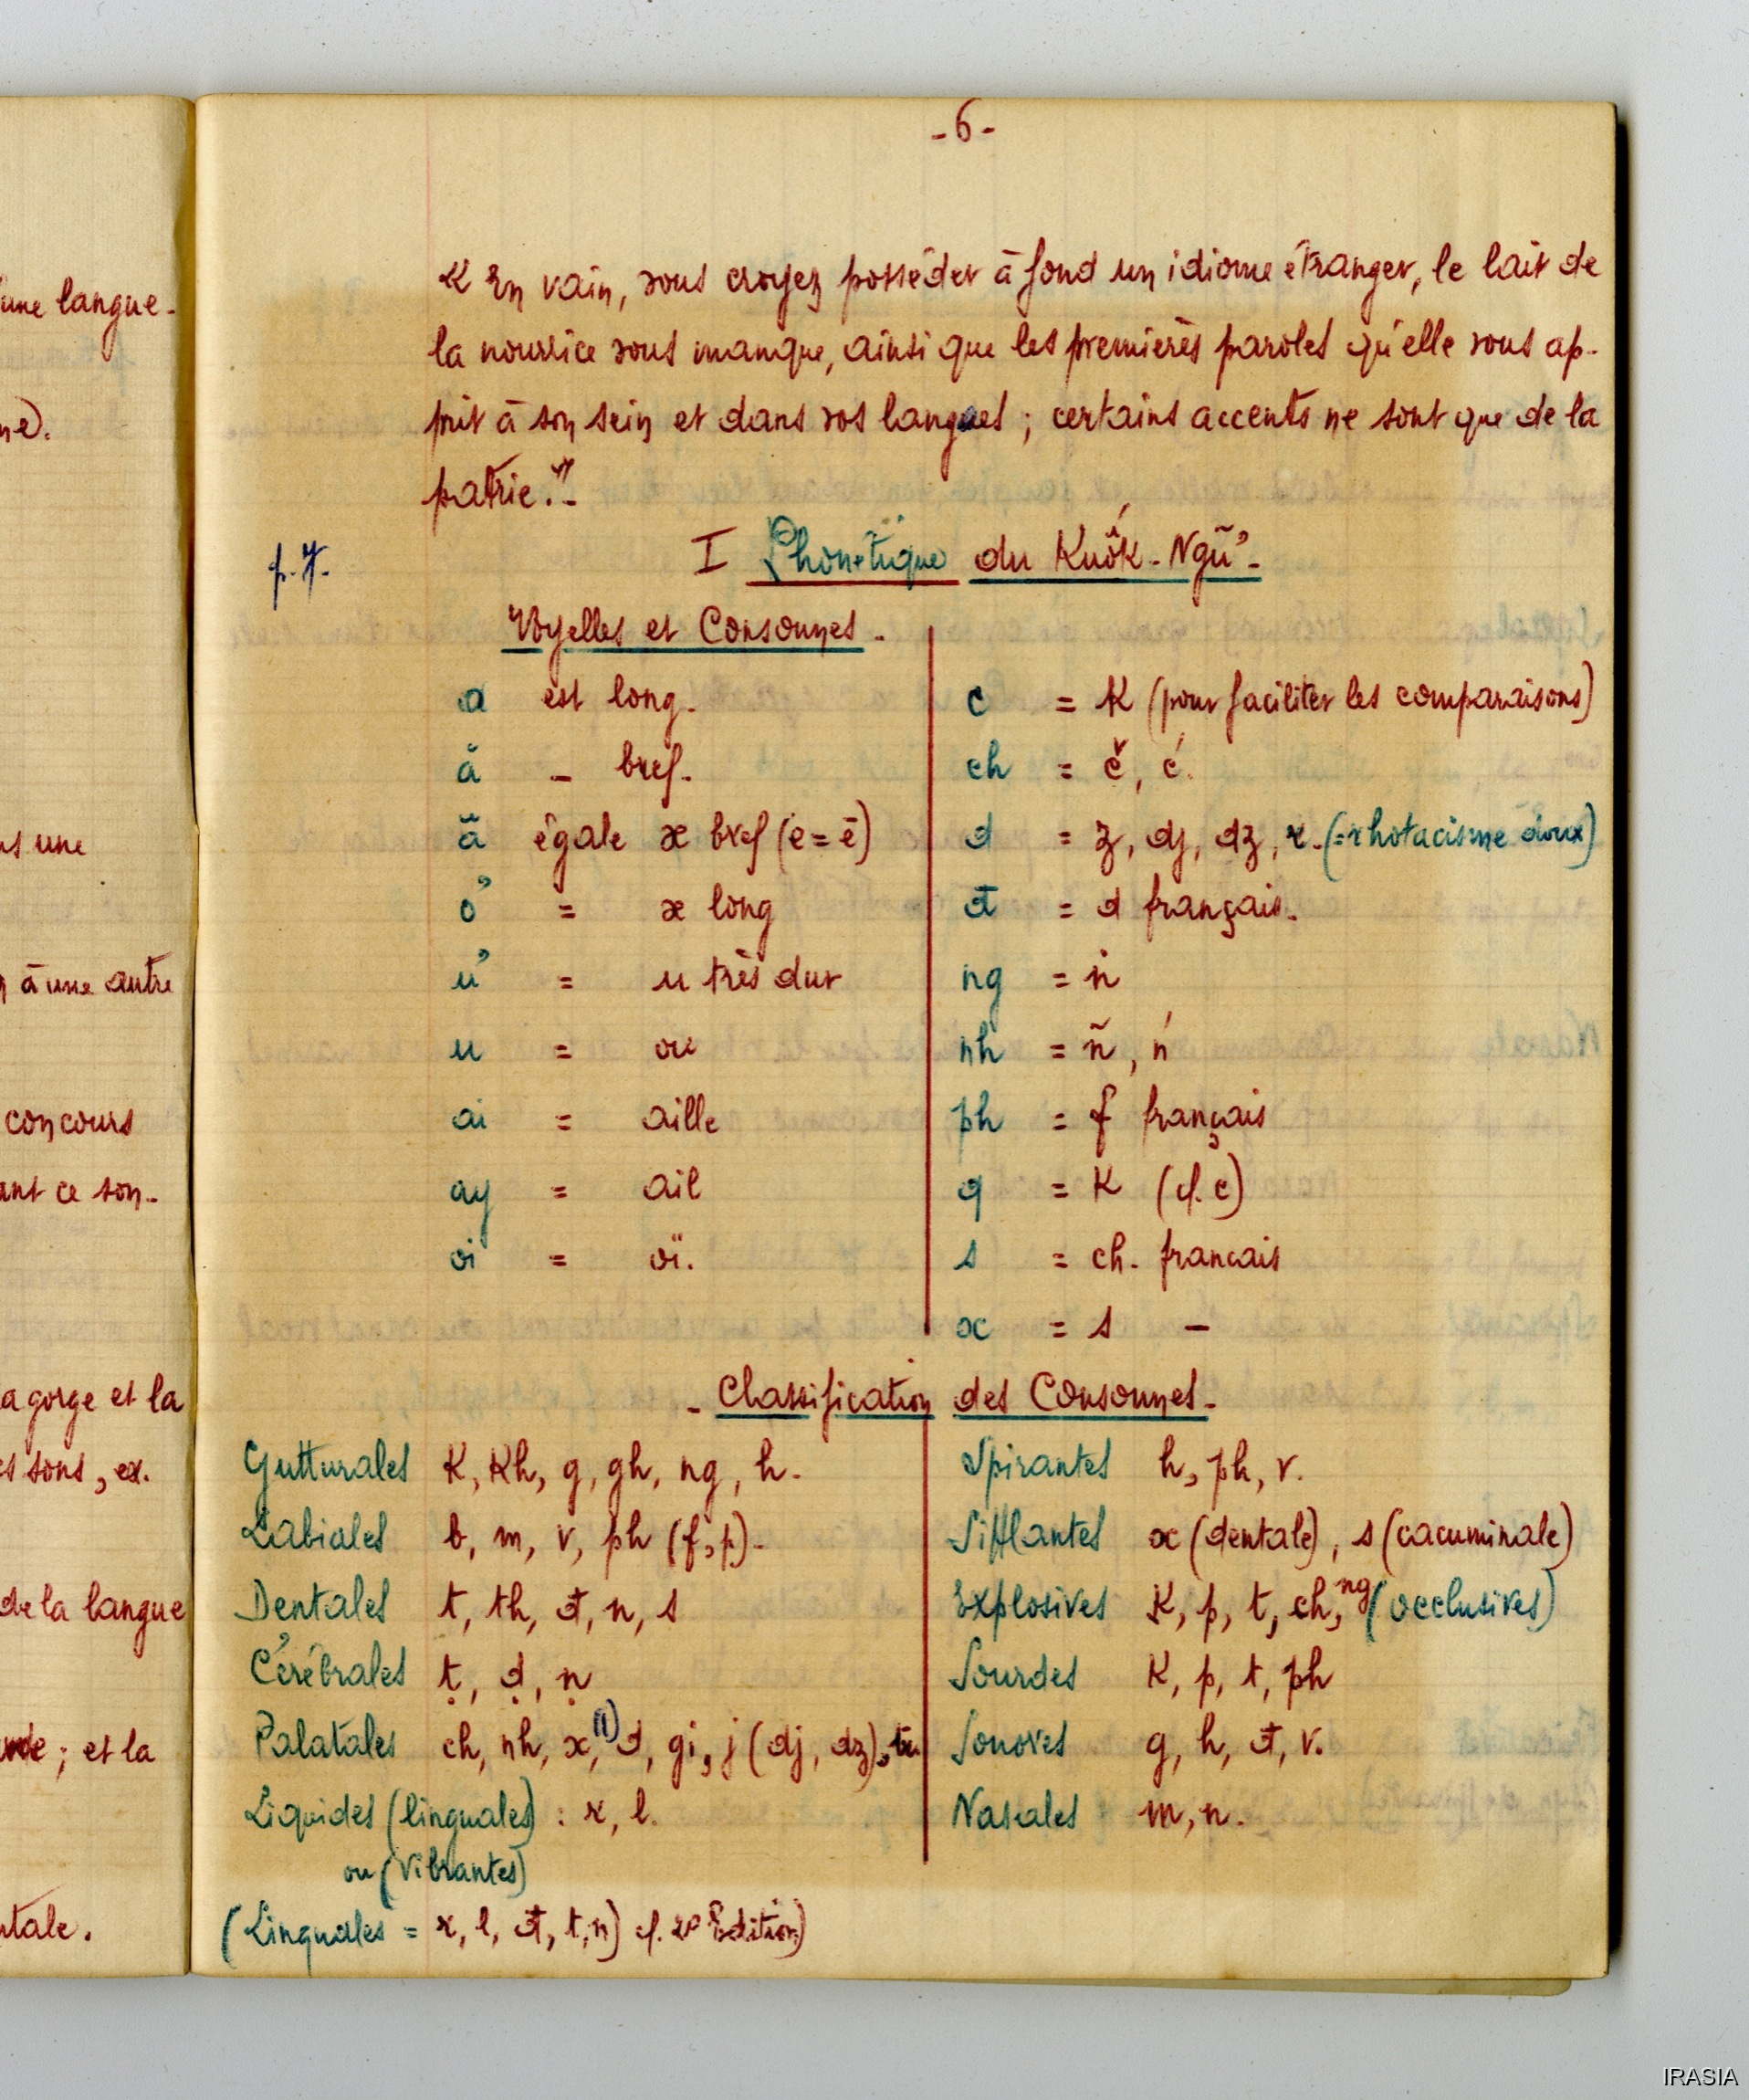 - 6 -
« En vain, vous croyez posséder à fond un idiome étranger, le lait de
la nourrice vous manque, ainsi que les premières paroles qu'elle vous ap-
prit à son sein et dans vos langes ; certains accents ne sont que de la
patrie." -
p. 7.
I Phonétique du Kuốk-Ngữ -
Voyelles et Consonnes -
a est long.
ă - bref.
â égale æ bref (e = ē)
ơ = æ long
ư = u très dur
u = ou
ai = aille
ay = ail
oi = oï.
c = K (pour faciliter les comparaisons)
ch = č, ć.
d = z, dj, dz, r. (= rhotacisme doux)
đ = d français.
ng = ṅ
nh = ñ, ń
ph = f français
q = K (cf. c)
s = ch. francais
x = s -
- Classification des Consonnes -
Gutturales K, Kh, g, gh, ng, h.
Labiales b, m, v, ph (f, p). -
Dentales t, th, đ, n, s
Cérébrales ṭ, ḍ, ṇ
Palatales ch, nh, x, (1) d, gi, j (dj, dz),
Liquides (linguales) : r, l.
ou (Vibrantes)
(Linguales = r, l, đ, t, n) cf. 2º Edition)
Spirantes h, ph, v.
Sifflantes x (dentale), s (cacuminale)
Explosives K, p, t, ch, ng (occlusives)
Sourdes K, p, t, ph
Sonores g, h, đ, v.
Nasales m, n.
une langue -
ne).
s une
à une autre
concours
ant ce son -
a gorge et la
s sons, ex.
de la langue
; et la
ntale.
IRASIA